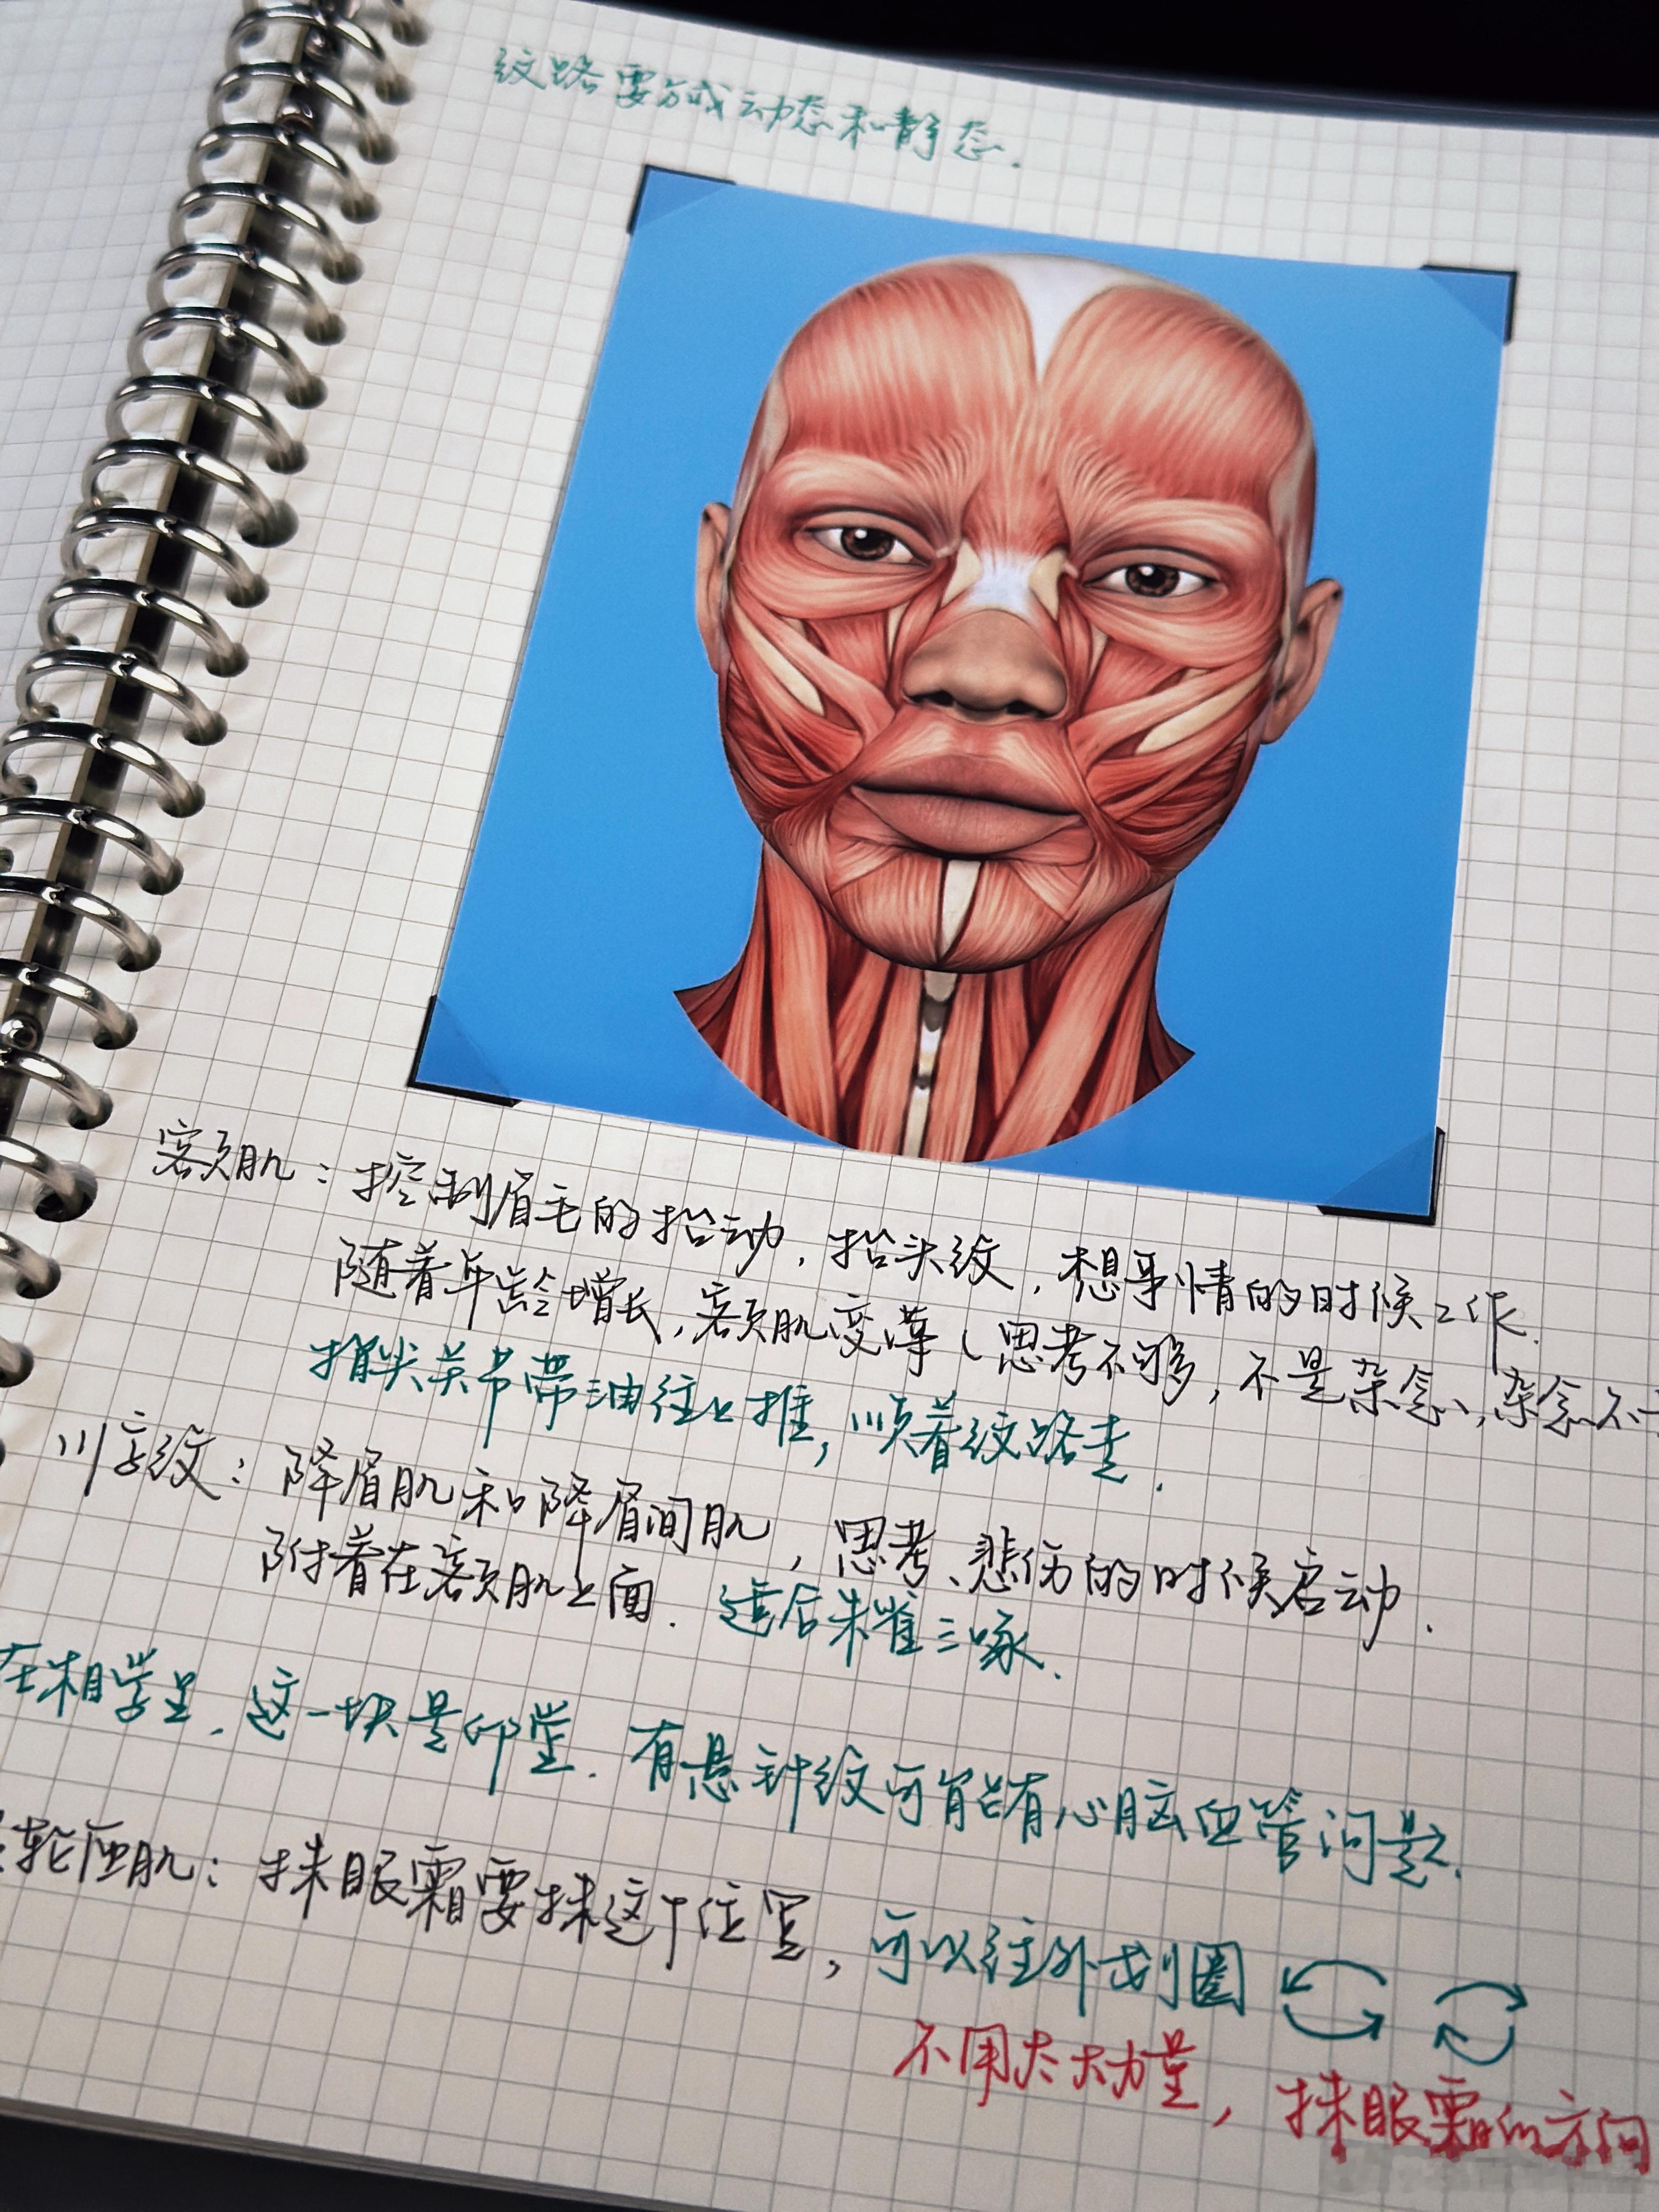 纹路要分成动态和静态.
额肌：控制眉毛的抬动，抬头纹，想事情的时候工作.
随着年龄增长，额肌变薄（思考不够，不是杂念，杂念不
指尖关节带油往上推，顺着纹路走.
川字纹：降眉肌和降眉间肌，思考、悲伤的时候启动.
附着在额肌上面. 适后朱雀三啄.
在相学里，这一块是印堂. 有悬针纹可能有心脑血管问题.
轮匝肌：抹眼霜要抹这个位置，可以往外划圈
不用太大力量，抹眼霜的方向